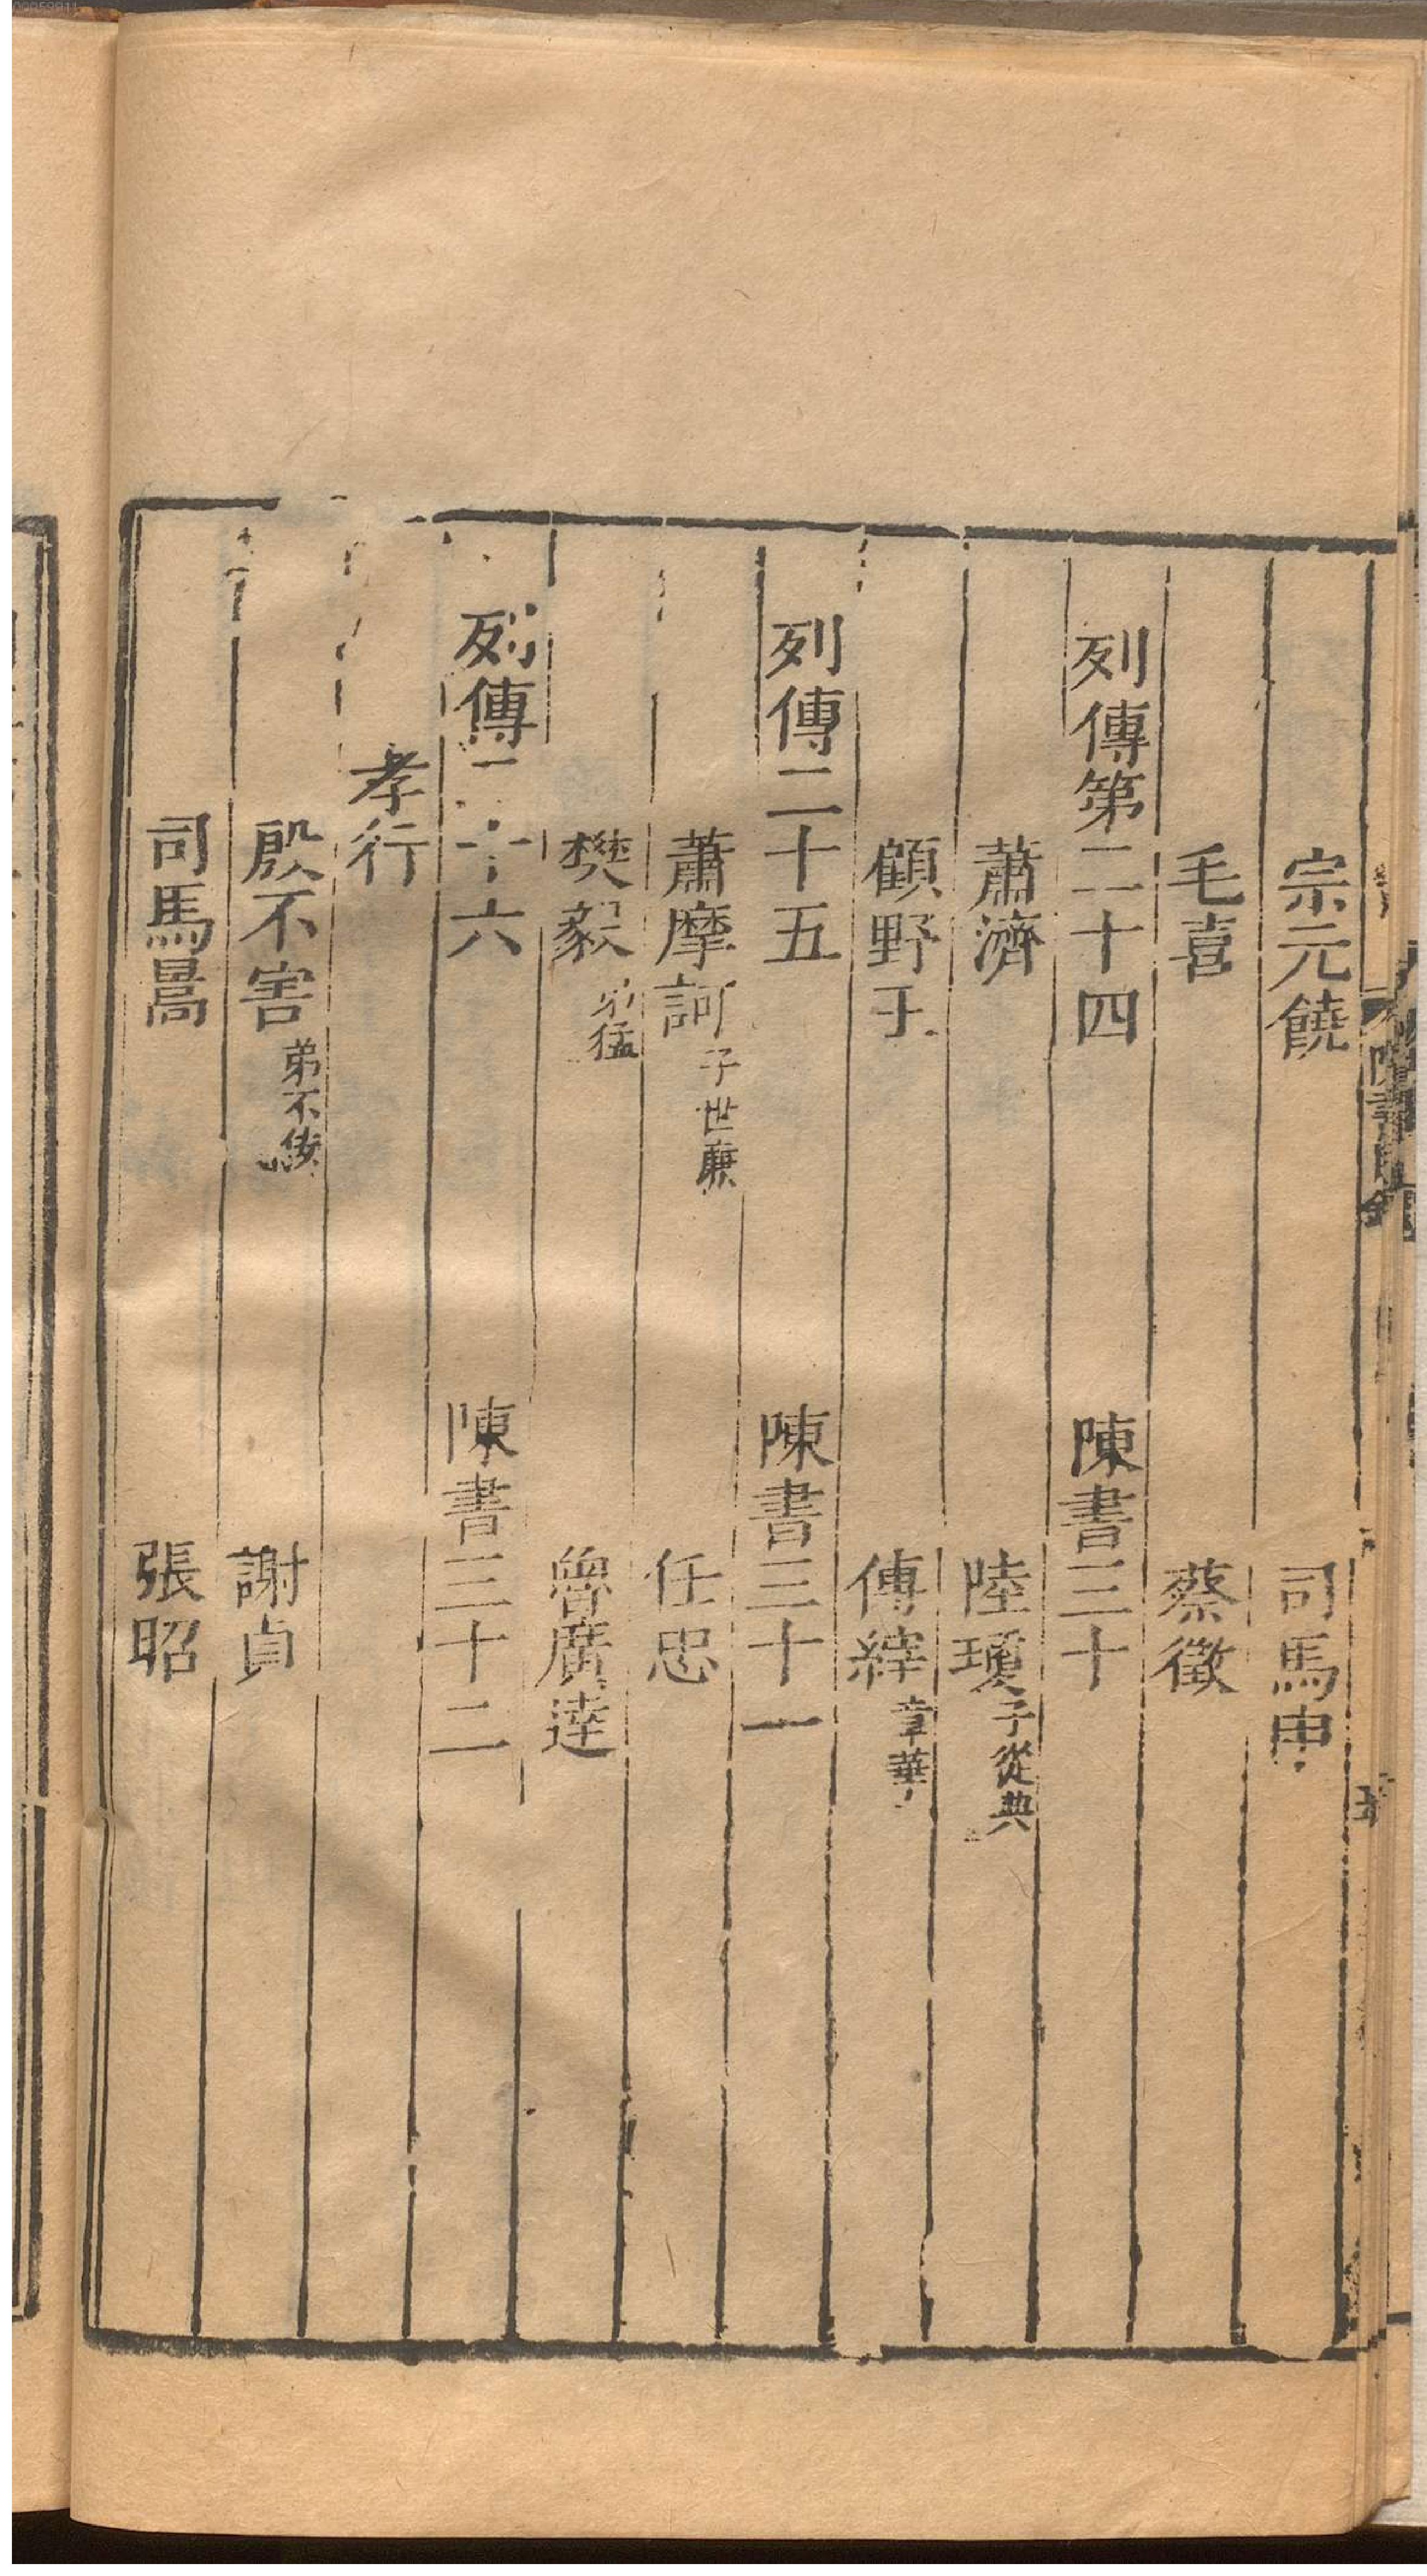 宗元饒 司馬申
毛喜 蔡徵
列傳第二十四 陳書三十
蕭濟 陸瓊子從典
顧野王 傅縡章華
列傳二十五 陳書三十一
蕭摩訶子世廉 任忠
樊毅弟猛 魯廣達
列傳二十六 陳書三十二
孝行
殷不害弟不佞 謝貞
司馬暠 張昭